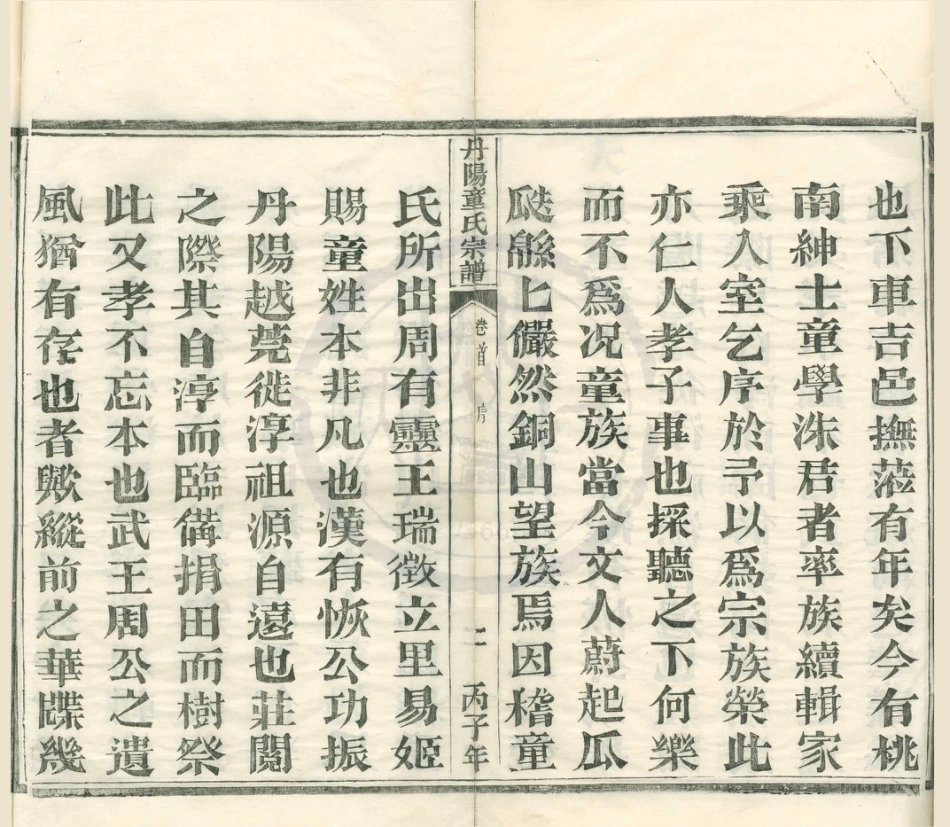 也下車吉邑撫蒞有年矣今有桃
南紳士童學洙君者率族續輯家
乘入室乞序於予以爲宗族榮此
亦仁人孝子事也採聽之下何樂
而不爲况童族當今文人蔚起瓜
瓞緜匕儼然銅山望族焉因稽童
丹陽童氏宗譜
卷首
序
二
丙子年
氏所出周有靈王瑞徵立里易姬
賜童姓本非凡也漢有恢公功振
丹陽越莞徙淳祖源自遠也莊閱
之際其自淳而臨溝捐田而樹祭
此又孝不忘本也武王周公之遺
風猶有存也者歟縱前之華牒幾